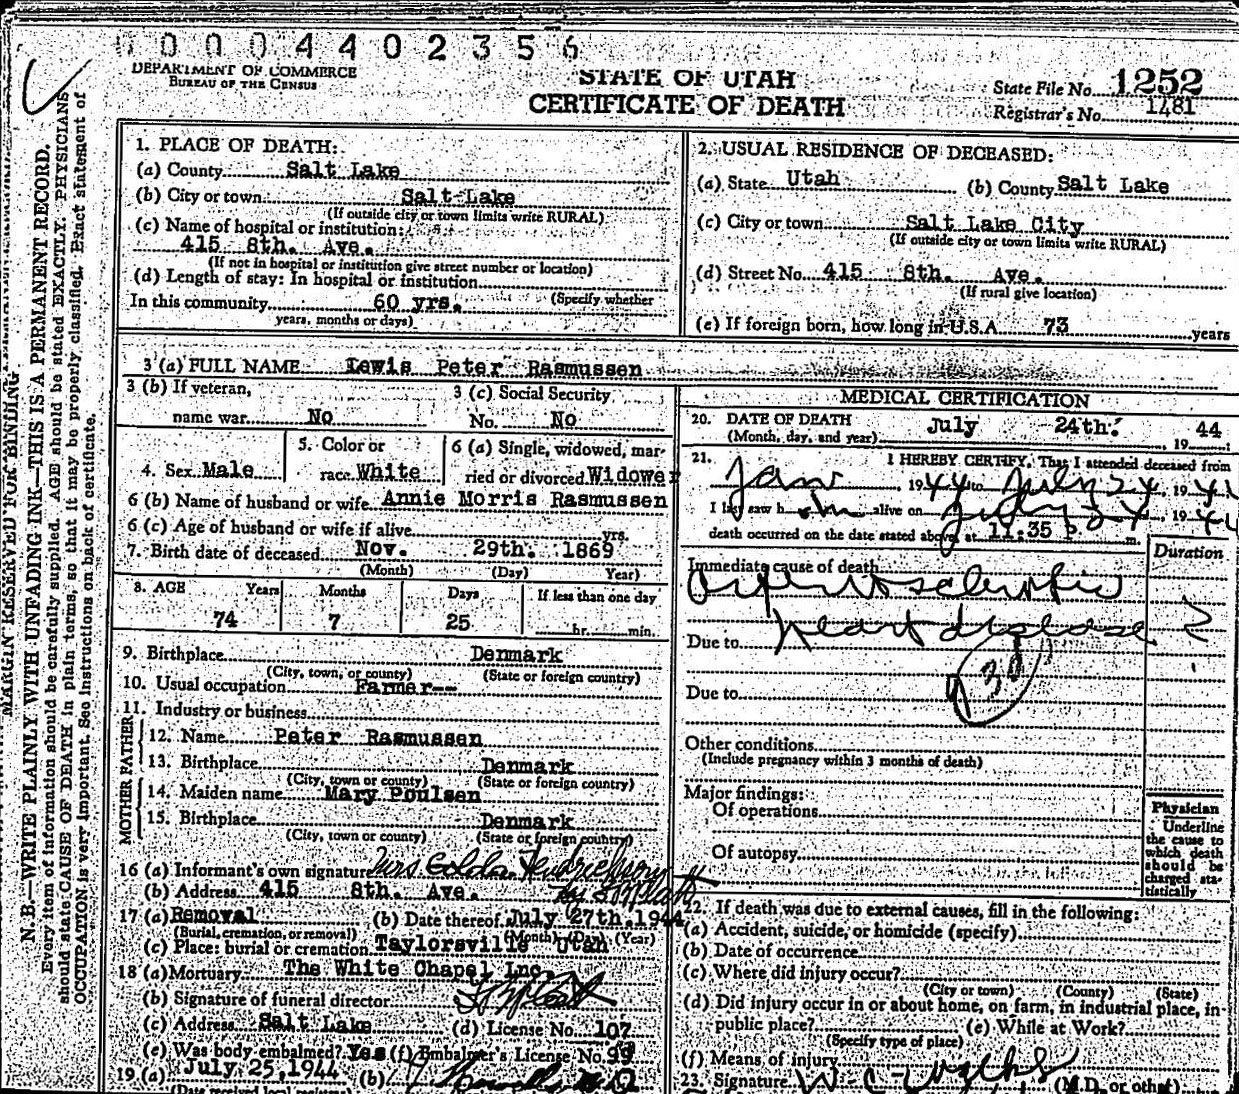 0 0 0 4 4 0 2 3 5 6
DEPARTMENT OF COMMERCE
BUREAU OF THE CENSUS
STATE OF UTAH
CERTIFICATE OF DEATH
State File No. 1252
Registrar's No. 1481
MARGIN RESERVED FOR BINDING
N. B.—WRITE PLAINLY WITH UNFADING INK—THIS IS A PERMANENT RECORD.
Every item of information should be carefully supplied. AGE should be stated EXACTLY. PHYSICIANS
should state CAUSE OF DEATH in plain terms, so that it may be properly classified. Exact statement of
OCCUPATION is very important. See Instructions on back of certificate.
1. PLACE OF DEATH:
(a) County Salt Lake
(b) City or town Salt-Lake
(If outside city or town limits write RURAL)
(c) Name of hospital or institution:
415 8th. Ave.
(If not in hospital or institution give street number or location)
(d) Length of stay: In hospital or institution
In this community 60 yrs. (Specify whether
years, months or days)
2. USUAL RESIDENCE OF DECEASED:
(a) State Utah (b) County Salt Lake
(c) City or town Salt Lake City
(If outside city or town limits write RURAL)
(d) Street No. 415 8th. Ave.
(If rural give location)
(e) If foreign born, how long in U.S.A 73 years
3 (a) FULL NAME Lewis Peter Rasmussen
3 (b) If veteran,
name war No
3 (c) Social Security
No. No
4. Sex Male
5. Color or
race White
6 (a) Single, widowed, mar-
ried or divorced Widower
6 (b) Name of husband or wife Annie Morris Rasmussen
6 (c) Age of husband or wife if alive yrs.
7. Birth date of deceased Nov. 29th. 1869
(Month) (Day) Year)
8. AGE Years Months Days If less than one day
74 7 25 hr. min.
9. Birthplace Denmark
(City, town, or county) (State or foreign country)
10. Usual occupation Farmer--
11. Industry or business
FATHER
12. Name Peter Rasmussen
13. Birthplace Denmark
(City, town or county) (State or foreign country)
MOTHER
14. Maiden name Mary Poulsen
15. Birthplace Denmark
(City, town or county) (State or foreign country)
16 (a) Informant's own signature Mrs. Golda Hendrickson
(b) Address 415 8th. Ave.
17 (a) Removal (b) Date thereof July 27th. 1944
(Burial, cremation, or removal) (Month) (Day) (Year)
(c) Place: burial or cremation Taylorsville Utah
18 (a) Mortuary The White Chapel Inc.
(b) Signature of funeral director
(c) Address Salt Lake (d) License No. 107
(e) Was body embalmed? Yes (f) Embalmer's License No. 99
19. (a) July 25, 1944 (b)
(Date received local
MEDICAL CERTIFICATION
20. DATE OF DEATH July 24th. 1944
(Month, day, and year)
21. I HEREBY CERTIFY, That I attended deceased from
Jan 1944 to July 24, 1944
I last saw him alive on July 24, 1944
death occurred on the date stated above, at 11:35 P. m.
Immediate cause of death Duration
heart disease
Due to
Due to
Other conditions
(Include pregnancy within 3 months of death)
Major findings:
Of operations
Of autopsy
Physician
Underline
the cause to
which death
should be
charged sta-
tistically
22. If death was due to external causes, fill in the following:
(a) Accident, suicide, or homicide (specify)
(b) Date of occurrence
(c) Where did injury occur?
(City or town) (County) (State)
(d) Did injury occur in or about home, on farm, in industrial place, in-
public place? (e) While at Work?
(Specify type of place)
(f) Means of injury
23. Signature (M.D. or other)